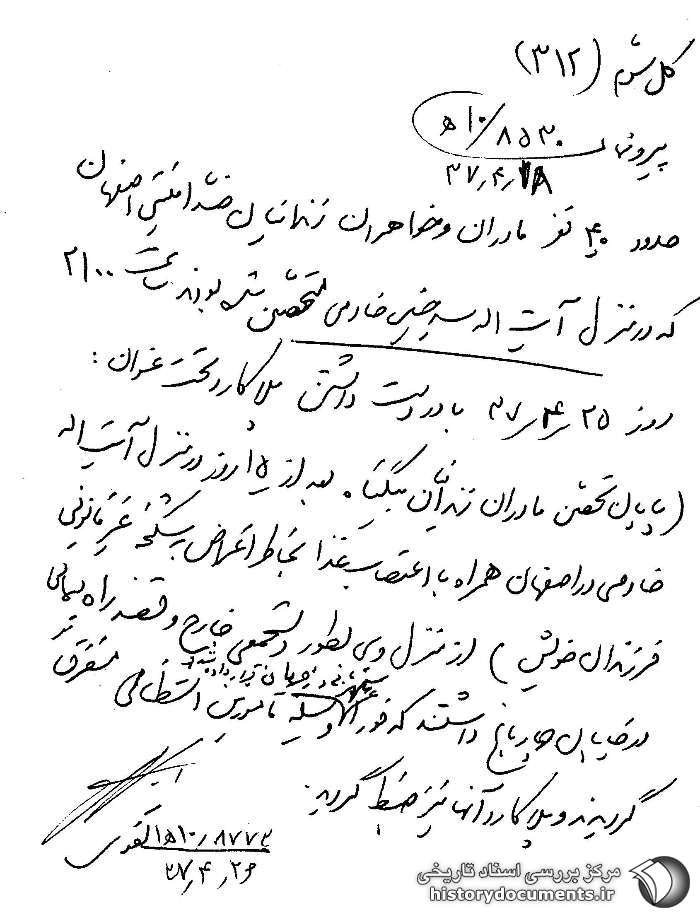 کل سوم (۳۱۲)
پیرو شماره ۸۵۳۰/۱۰ﻫ ۱
۳۷٫۴٫۱۸
حدود ۴۰ نفر مادران و خواهران زندانیان ضد امنیتی اصفهان
که در منزل آیت اله سید حسین خادمی متحصن شده بودند ساعت ۲۱۰۰
روز ۳۷٫۴٫۲۵ با در دست داشتن پلاکارد تحت عنوان :
(پایان تحصن مادران زندانیان بیگناه بعد از ۱۵ روز در منزل آیت اله
خادمی در اصفهان همراه با اعتصاب غذا بخاطر اعتراض بشکنجه غیر قانونی
فرزندان خویش) از منزل وی بطور دستجمعی خارج و قصد راه پیمائی
در خیابان چهارباغ داشتند که فوراً وسیله مأمورین انتظامی متفرق
گردیدند و پلاکارد آنها نیز ضبط گردید.
۸۷۷۳٫۱۰ﻫ ۱ تقوی
۳۷٫۴٫۲۶
مرکز بررسی اسناد تاریخی
historydocuments.ir